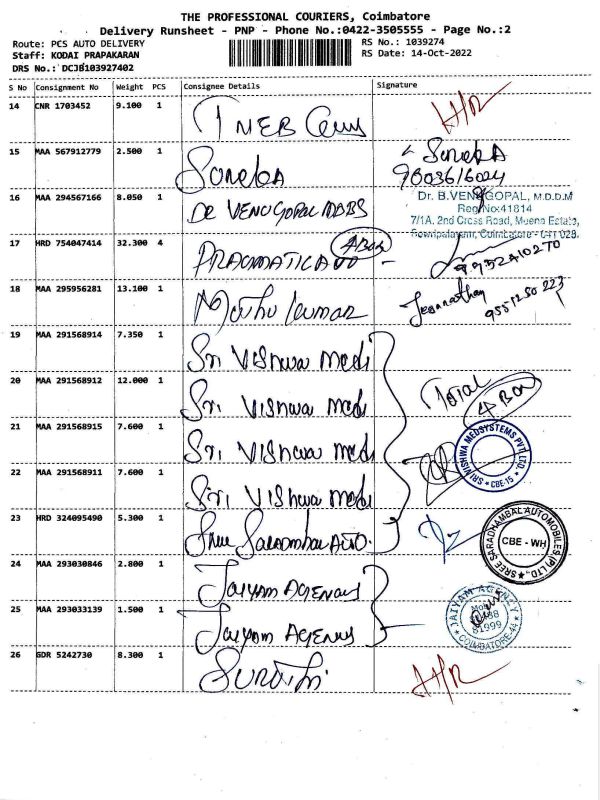 THE PROFESSIONAL COURIERS, Coimbatore
Delivery Runsheet - PNP - Phone No.:0422-3505555 - Page No.:2
Route: PCS AUTO DELIVERY RS No.: 1039274
Staff: KODAI PRAPAKARAN RS Date: 14-Oct-2022
DRS No.: DCJB103927402
S No Consignment No Weight PCS Consignee Details Signature
14 CNR 1703452 9.100 1 TNEB
15 MAA 567912779 2.500 1 Soneka Soneka
9603616024
16 MAA 294567166 8.050 1 DR VENUGOPAL MBBS Dr. B.VENUGOPAL, M.D.D.M
Reg No:41814
7/1A. 2nd Cross Road, Meena Estate,
Sowripalayam, Coimbatore - 641 028.
17 HRD 754047414 32.300 4 PRAGMATIC AUTO 4 Box 9952410270
18 MAA 295956281 13.100 1 Kumar Jegannathan
9551250223
19 MAA 291568914 7.350 1 Sri Vishwa Medi
20 MAA 291568912 12.000 1 Sri Vishwa Medi Total 4 Box
21 MAA 291568915 7.600 1 Sri Vishwa Medi SRI VISHWA MEDSYSTEMS PVT. LTD. CBE-15
22 MAA 291568911 7.600 1 Sri Vishwa Medi
23 HRD 324095490 5.300 1 Shree Saradmbal Auto. SREE SARADHAMBAL AUTOMOBILES (P) LTD., CBE - WH
24 MAA 293030846 2.800 1 Jaiyam Agency
25 MAA 293033139 1.500 1 Jaiyam Agency JAIYAM AGENCY COIMBATORE-44
26 GDR 5242730 8.300 1 H/R